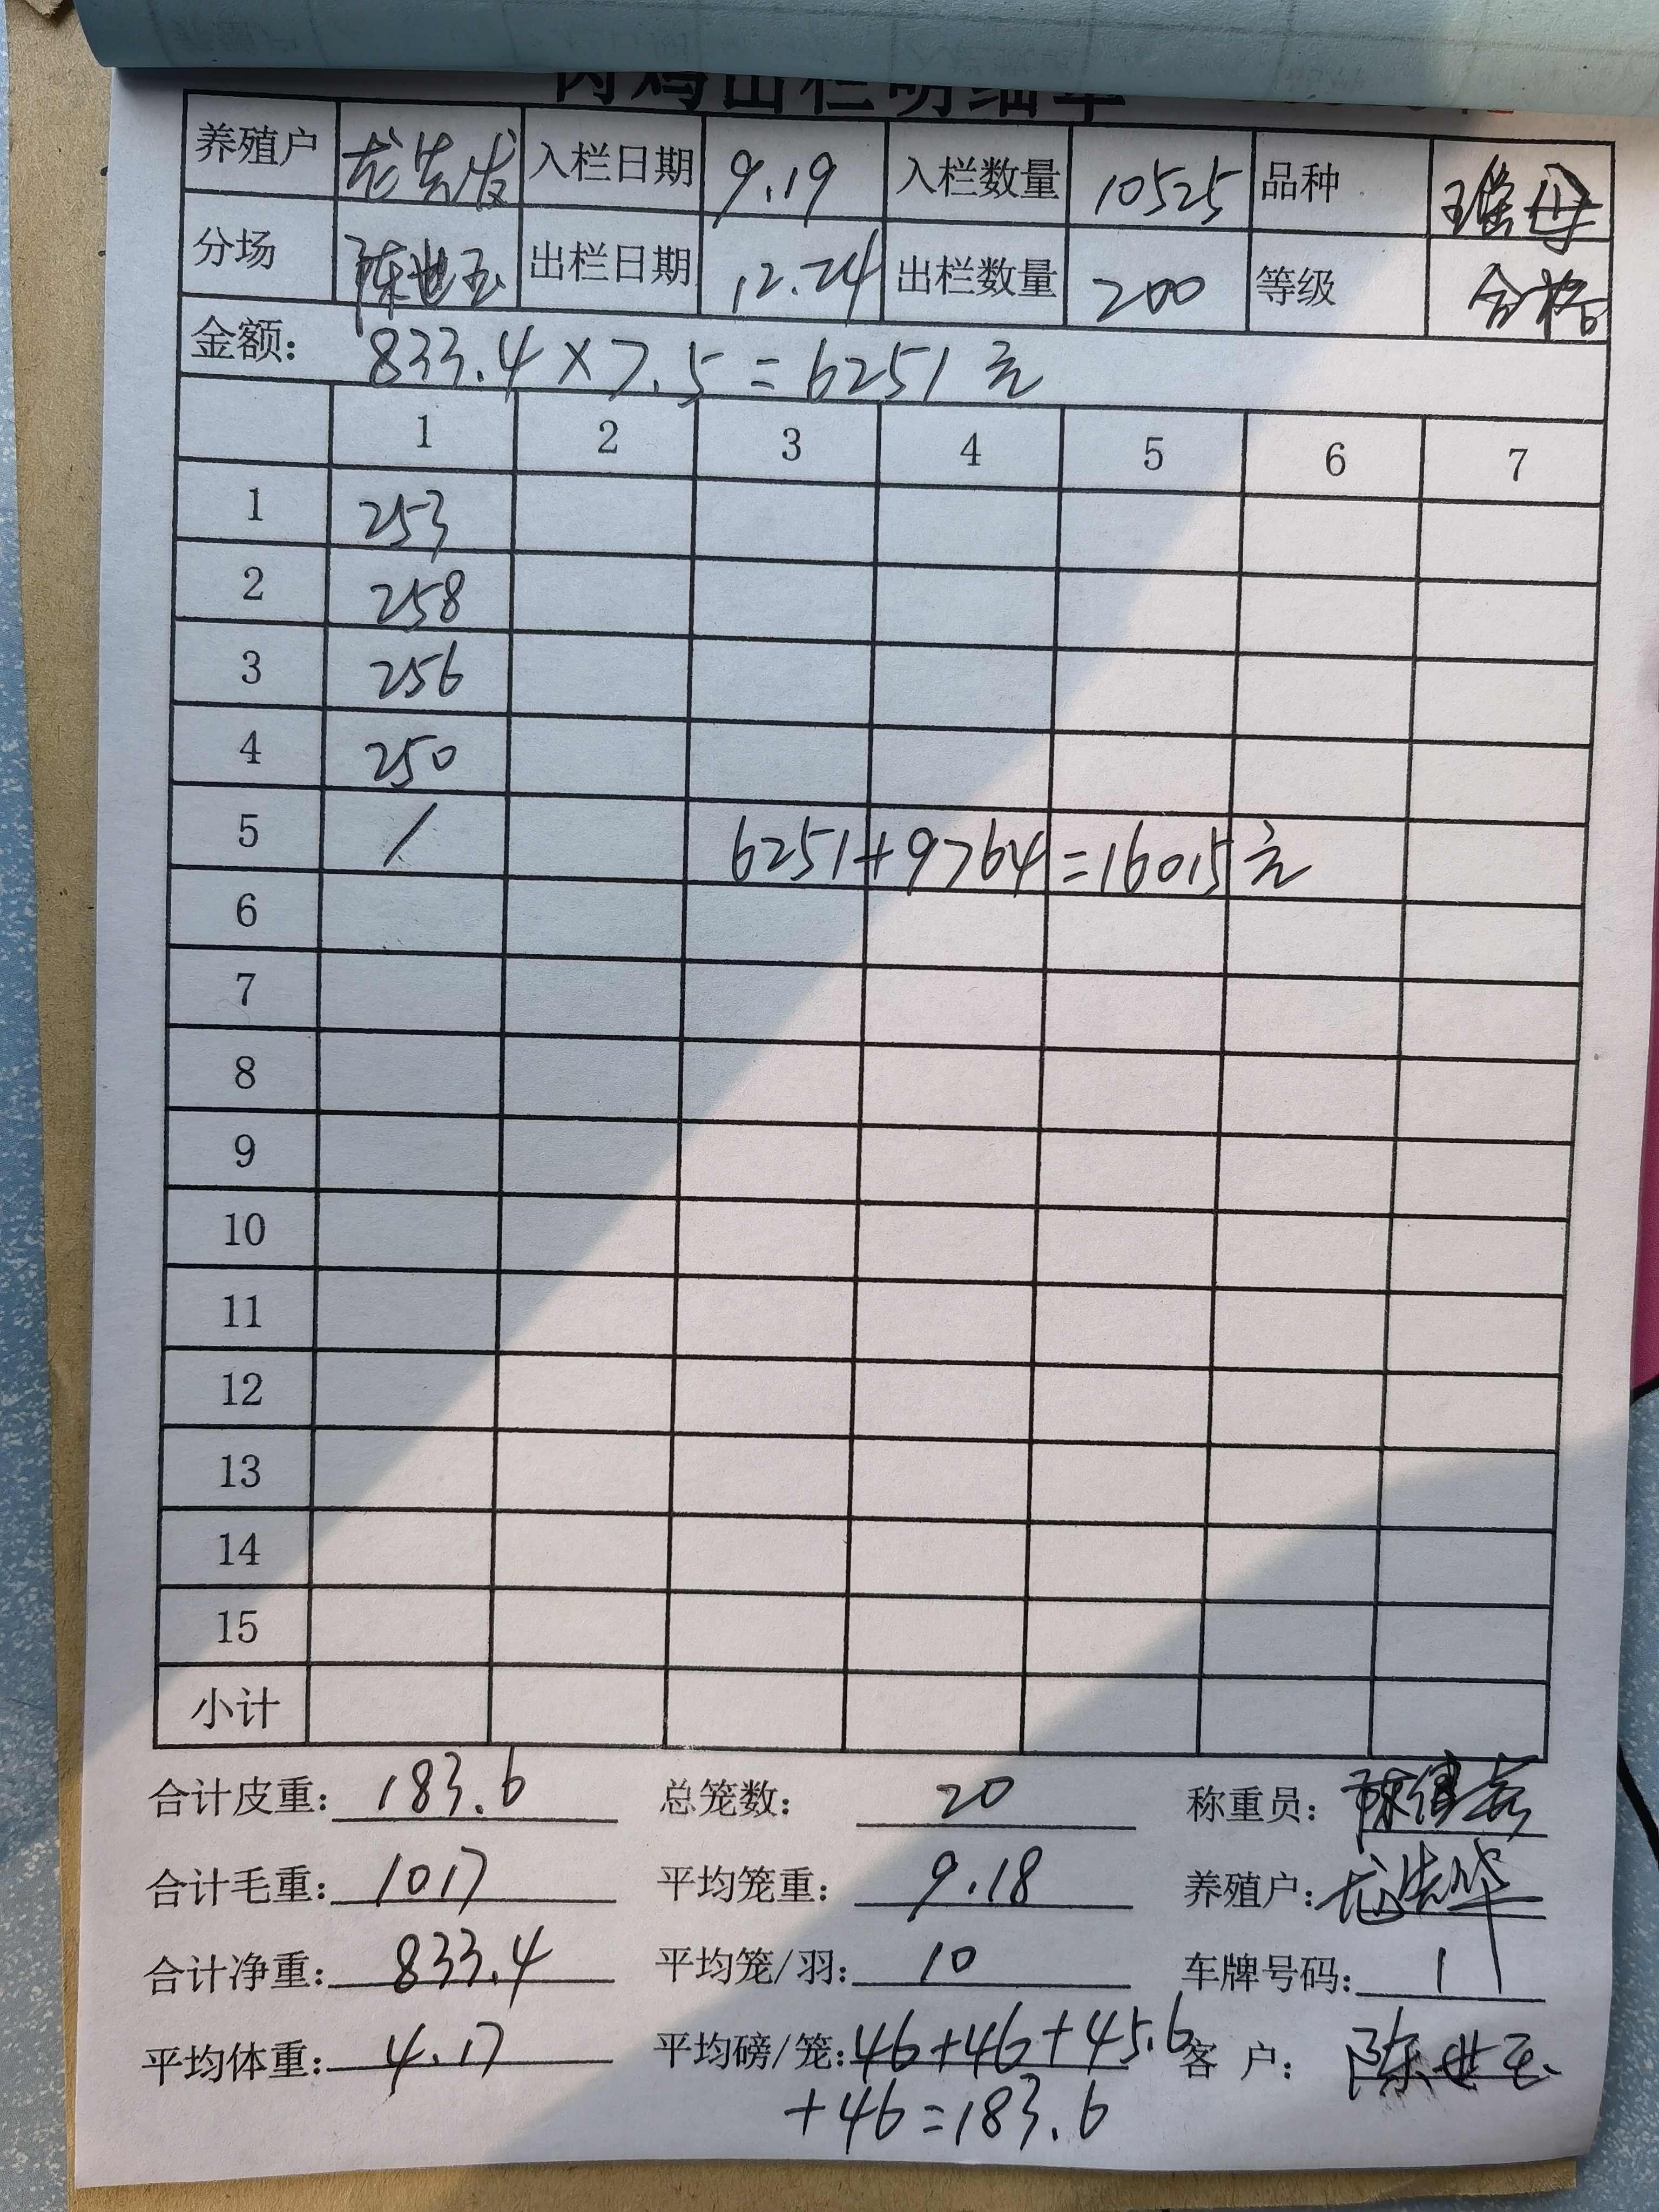 肉鸡出栏明细单
养殖户 龙先发 入栏日期 9.19 入栏数量 10525 品种 瑶母
分场 陈世玉 出栏日期 12.24 出栏数量 200 等级 合格
金额: 833.4×7.5=6251元
1 2 3 4 5 6 7
1 253
2 258
3 256
4 250
5 / 6251+9764=16015元
6
7
8
9
10
11
12
13
14
15
小计
合计皮重: 183.6 总笼数: 20 称重员:
合计毛重: 1017 平均笼重: 9.18 养殖户:
合计净重: 833.4 平均笼/羽: 10 车牌号码: 1
平均体重: 4.17 平均磅/笼: 46+46+45.6 客户: 陈世玉
+46=183.6